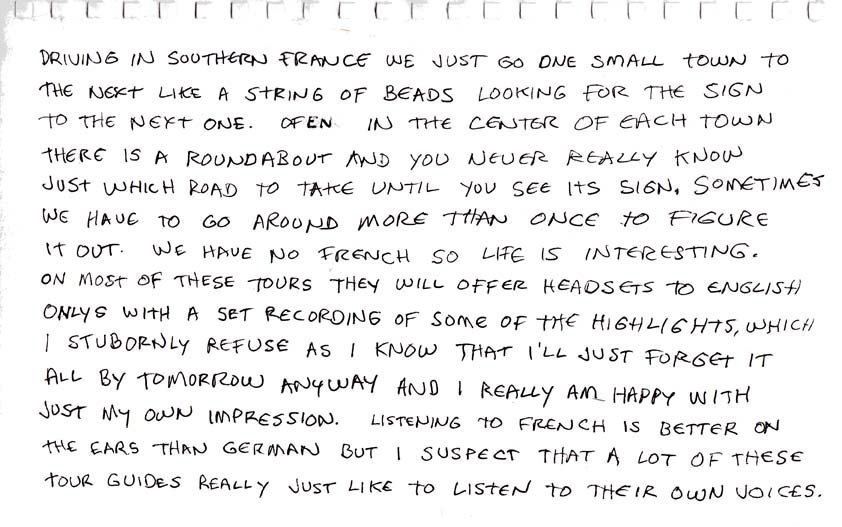 DRIVING IN SOUTHERN FRANCE WE JUST GO ONE SMALL TOWN TO
THE NEXT LIKE A STRING OF BEADS LOOKING FOR THE SIGN
TO THE NEXT ONE. OFEN IN THE CENTER OF EACH TOWN
THERE IS A ROUNDABOUT AND YOU NEVER REALLY KNOW
JUST WHICH ROAD TO TAKE UNTIL YOU SEE ITS SIGN, SOMETIMES
WE HAVE TO GO AROUND MORE THAN ONCE TO FIGURE
IT OUT. WE HAVE NO FRENCH SO LIFE IS INTERESTING.
ON MOST OF THESE TOURS THEY WILL OFFER HEADSETS TO ENGLISH
ONLYS WITH A SET RECORDING OF SOME OF THE HIGHLIGHTS, WHICH
I STUBORNLY REFUSE AS I KNOW THAT I'LL JUST FORGET IT
ALL BY TOMORROW ANYWAY AND I REALLY AM HAPPY WITH
JUST MY OWN IMPRESSION. LISTENING TO FRENCH IS BETTER ON
THE EARS THAN GERMAN BUT I SUSPECT THAT A LOT OF THESE
TOUR GUIDES REALLY JUST LIKE TO LISTEN TO THEIR OWN VOICES.